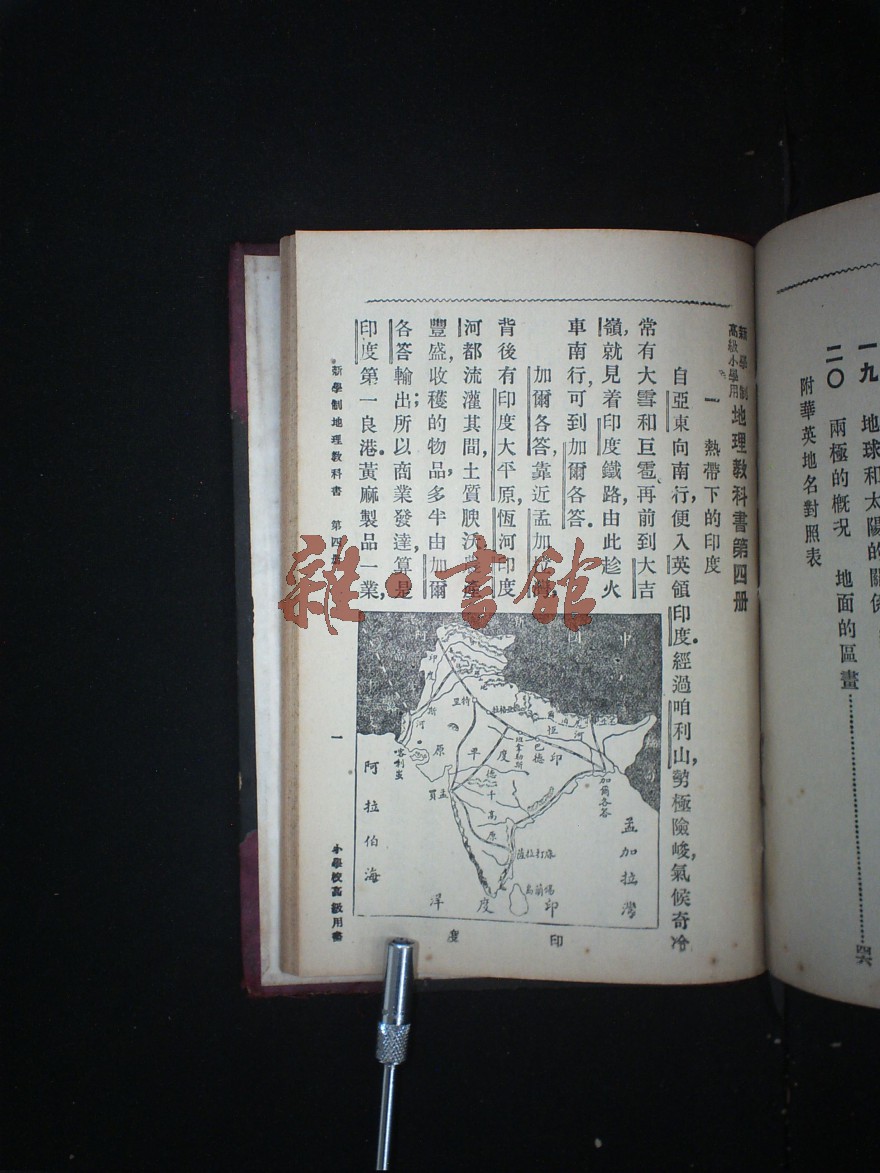 一九 地球和太陽的關係
二〇 兩極的概況 地面的區畫……四六
附華英地名對照表
新學制高級小學用 地理教科書第四册
一 熱帶下的印度
自亞東向南行,便入英領印度.經過咱利山,勢極險峻,氣候奇冷
常有大雪和巨雹.再前到大吉
嶺,就見着印度鐵路,由此趁火
車南行,可到加爾各答.
加爾各答,靠近孟加拉灣,
背後有印度大平原,恆河印度
河都流灌其間,土質腴沃,農產
豐盛,收穫的物品,多半由加爾
各答輸出;所以商業發達,算是
印度第一良港.黃麻製品一業,
孟加拉灣
阿拉伯海
印度洋
加爾各答
孟買
喀利蚩
特里
巴德
印度平原
德干高原
恆河
印度斯河
印度
新學制地理教科書 第四册
一
小學校高級用書
雜·書館